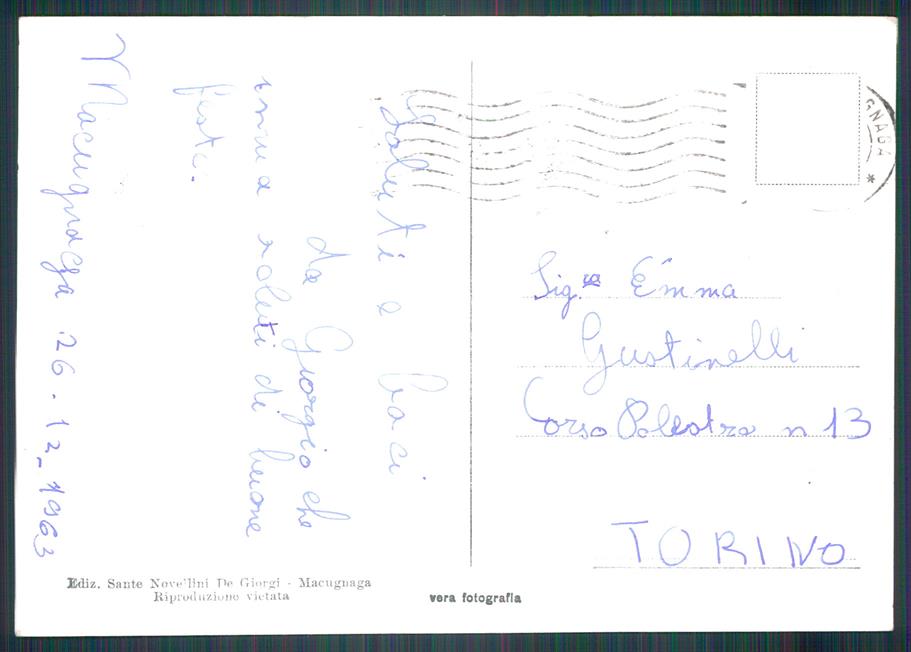 Macugnaga 26.12_1963
Saluti e baci
da Giorgio che
invia saluti di buone
feste.
GNAGA *
Sig.ra Emma
Gustinelli
Corso Palestro n 13
TORINO
Ediz. Sante Novellini De Giorgi - Macugnaga
Riproduzione vietata
vera fotografia